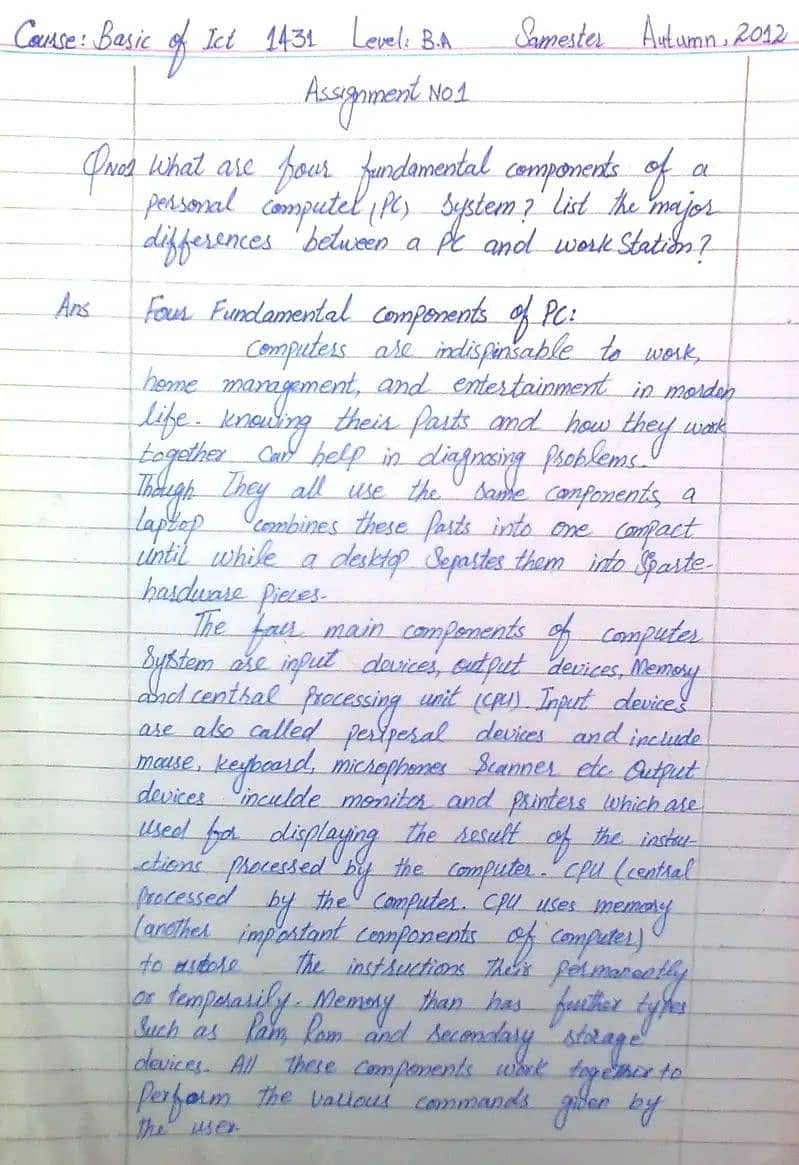 Course: Basic of Ict 1431 Level: B.A Samester Autumn, 2012
Assignment No1
QNo1 What are four fundamental components of a
personal computer (PC) System? List the major
differences between a PC and work Station?
Ans Four Fundamental components of PC:
Computers are indispinsable to work,
home management, and entertainment in morden
life. Knowing their Parts and how they work
together Can help in diagnosing Problems.
Though They all use the Same components, a
laptop combines these Parts into one compact
until while a desktop Sepastes them into Sparte-
hardware Pieces.
The four main components of computer
System are input davices, output devices, Memory
and central Processing unit (CPU). Input devices
are also called periperal devices and include
mouse, keyboard, microphones Scanner etc. Output
devices inculde monitor and Printers which are
used for displaying the result of the instru-
ctions Processed by the computer. CPU (central
Processed by the Computer. CPU uses memory
(another important components of computer)
to the instructions Their permanently
or temporarily. Memory than has further types
Such as Ram, Rom and Secondary storage
devices. All these components work together to
Perform the vallous commands given by
The user.